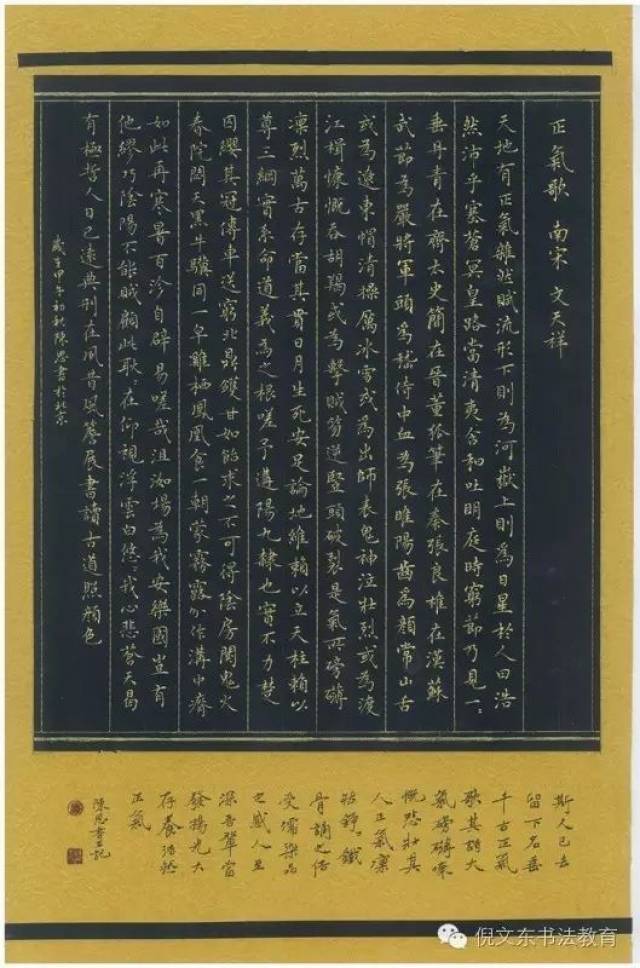 正氣歌 南宋 文天祥
天地有正氣雜然賦流形下則為河嶽上則為日星於人曰浩
然沛乎塞蒼冥皇路當清夷含和吐明庭時窮節乃見一:
垂丹青在齊太史簡在晉董狐筆在秦張良椎在漢蘇
武節為嚴將軍頭為嵇侍中血為張睢陽齒為顏常山舌
或為遼東帽清操厲冰雪或為出師表鬼神泣壯烈或為渡
江楫慷慨吞胡羯或為擊賊笏逆豎頭破裂是氣所磅礴
凜烈萬古存當其貫日月生死安足論地維賴以立天柱賴以
尊三綱實系命道義為之根嗟予遘陽九隸也實不力楚
囚纓其冠傳車送窮北鼎鑊甘如飴求之不可得陰房闃鬼火
春院閟天黑牛驥同一皁雞栖鳳凰食一朝蒙霧露分作溝中瘠
如此再寒暑百沴自辟易嗟哉沮洳場為我安樂國豈有
他繆巧陰陽不能賊顧此耿:在仰視浮雲白悠:我心悲蒼天曷
有極哲人日已遠典刑在夙昔風簷展書讀古道照顏色
歲在甲午初秋陳思書於北京
斯人已去
留下名垂
千古正氣
歌其詞大
氣磅礴慷
慨悲壯其
人正氣凜
鐵
骨
受
之感人至
深吾輩當
發揚光大
存養浩然
正氣
陳思書並記
倪文东书法教育